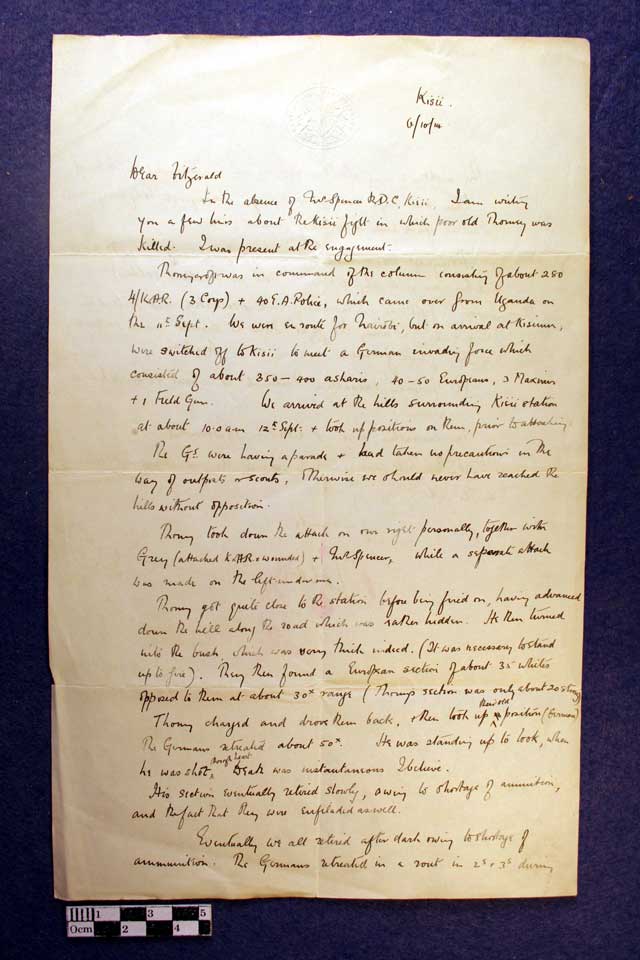 Kisii.
6/10/14
Dear Fitzgerald
In the absence of Mr Spencer A.D.C. Kisii, I am writing
you a few lines about the Kisii fight in which poor old Thorney was
killed. I was present at the engagement.
Thorneycroft was in command of the column consisting of about 250
4/K.A.R. (3 Coys) + 40 E.A. Police, which came over from Uganda on
the 11th Sept. We were en route for Nairobi, but on arrival at Kisumu,
were switched off to Kisii to meet a German invading force which
consisted of about 350 – 400 asharis, 40-50 Europeans, 3 Maxims
+ 1 Field Gun. We arrived at the hills surrounding Kisii station
at about 10.0 am 12th Sept. + took up positions on them, prior to attacking.
The Gs were having a parade + had taken no precautions in the
way of outposts or scouts, otherwise we should never have reached the
hills without opposition.
Thorney took down the attack on our right personally, together with
Grey (attached K.A.R. + wounded) + Mr Spencer, while a separate attack
was made on the left under me.
Thorney got quite close to the station before being fired on, having advanced
down the hill along the road which was rather hidden. He then turned
into the bush which was very thick indeed. (It was necessary to stand
up to fire). They then found a European section of about 35 whites
opposed to them at about 30x range (Thorny's section was only about 20 strong)
Thorney charged and drove them back, + then took up their old position (German)
The Germans retreated about 50x. He was standing up to look, when
he was shot through heart. Death was instantaneous I believe.
His section eventually retired slowly, owing to shortage of ammunition,
and the fact that they were enfiladed as well.
Eventually we all retired after dark owing to shortage of
ammunition. The Germans retreated in a rout in 2s + 3s during
0cm 1 2 3 4 5